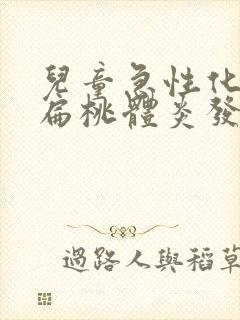 兒童急性化
扁桃體炎發
過路人與稻草